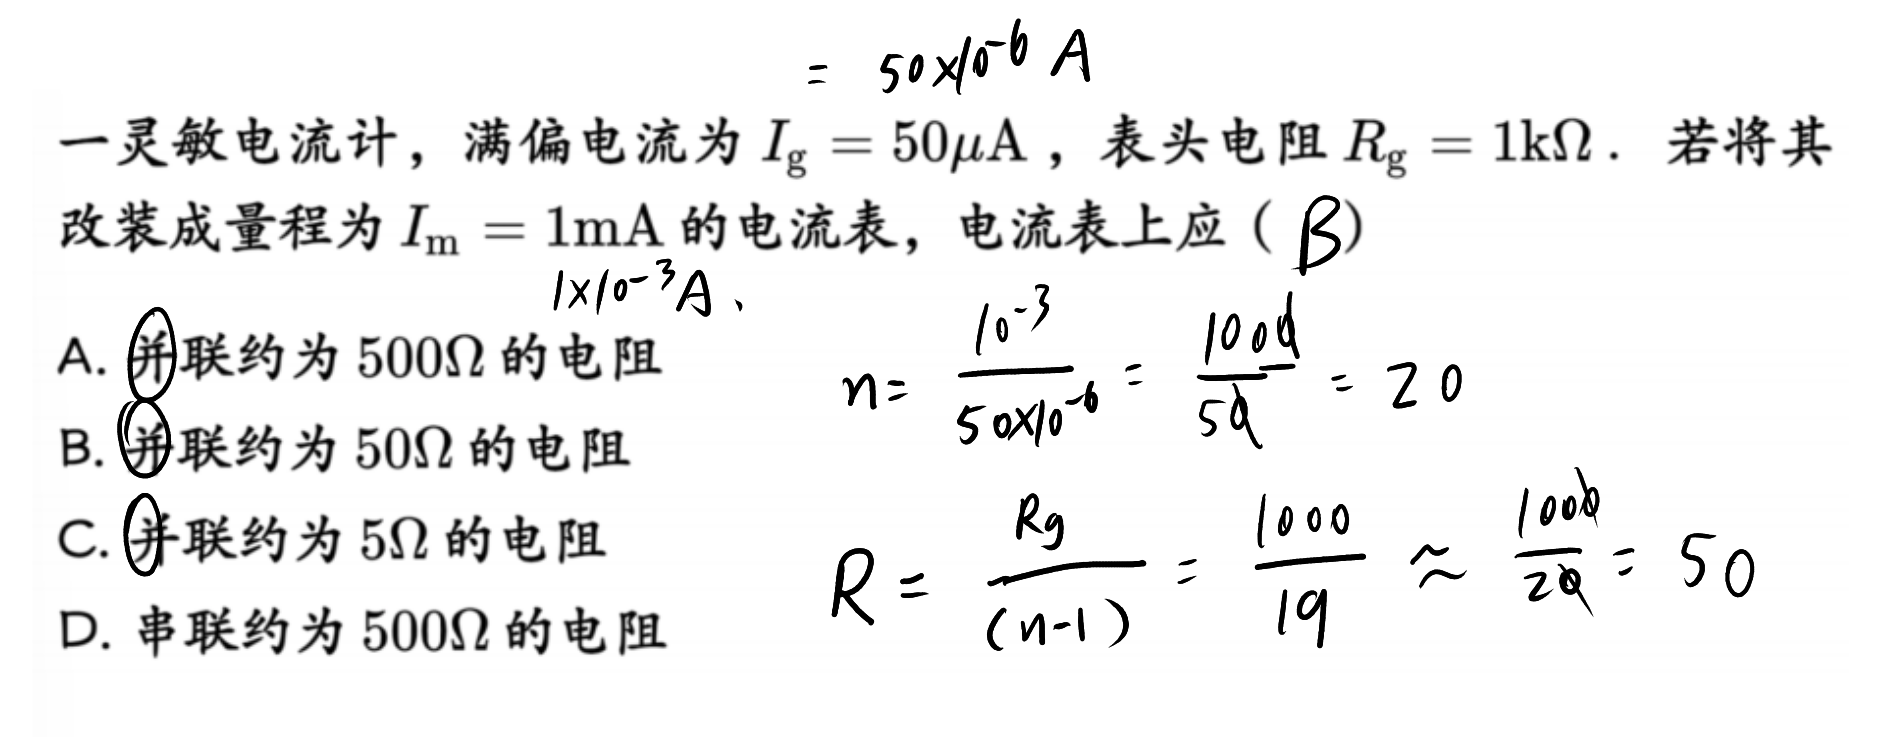 = 50×10⁻⁶ A
一灵敏电流计，满偏电流为 I_g = 50μA，表头电阻 R_g = 1kΩ．若将其
改装成量程为 I_m = 1mA 的电流表，电流表上应（ B ）
1×10⁻³A、
A. 并联约为 500Ω 的电阻
B. 并联约为 50Ω 的电阻
C. 并联约为 5Ω 的电阻
D. 串联约为 500Ω 的电阻
n = 10⁻³ / 50×10⁻⁶ = 1000 / 50 = 20
R = Rg / (n-1) = 1000 / 19 ≈ 1000 / 20 = 50